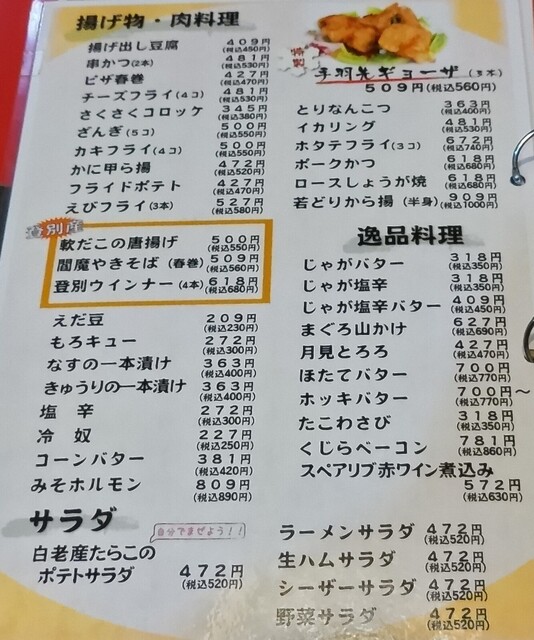 揚げ物・肉料理
揚げ出し豆腐 409円(税込450円)
串かつ(2本) 481円(税込530円)
ピザ春巻 427円(税込470円)
チーズフライ(4コ) 481円(税込530円)
さくさくコロッケ 345円(税込380円)
ざんぎ(5コ) 500円(税込550円)
カキフライ(4コ) 500円(税込550円)
かに甲ら揚 472円(税込520円)
フライドポテト 427円(税込470円)
えびフライ(3本) 527円(税込580円)
登別産
軟だこの唐揚げ 500円(税込550円)
閻魔やきそば(春巻) 509円(税込560円)
登別ウインナー(4本) 618円(税込680円)
えだ豆 209円(税込230円)
もろキュー 272円(税込300円)
なすの一本漬け 363円(税込400円)
きゅうりの一本漬け 363円(税込400円)
塩辛 272円(税込300円)
冷奴 227円(税込250円)
コーンバター 381円(税込420円)
みそホルモン 809円(税込890円)
サラダ
自分でまぜよう!!
白老産たらこの
ポテトサラダ 472円(税込520円)
特製
手羽先ギョーザ(3本)
509円(税込560円)
とりなんこつ 363円(税込400円)
イカリング 481円(税込530円)
ホタテフライ(3コ) 672円(税込740円)
ポークかつ 618円(税込680円)
ロースしょうが焼 618円(税込680円)
若どりから揚(半身) 909円(税込1000円)
逸品料理
じゃがバター 318円(税込350円)
じゃが塩辛 318円(税込350円)
じゃが塩辛バター 409円(税込450円)
まぐろ山かけ 627円(税込690円)
月見とろろ 427円(税込470円)
ほたてバター 700円(税込770円)
ホッキバター 700円〜(税込770円)
たこわさび 318円(税込350円)
くじらベーコン 781円(税込860円)
スペアリブ赤ワイン煮込み
572円(税込630円)
ラーメンサラダ 472円(税込520円)
生ハムサラダ 472円(税込520円)
シーザーサラダ 472円(税込520円)
野菜サラダ 472円(税込520円)